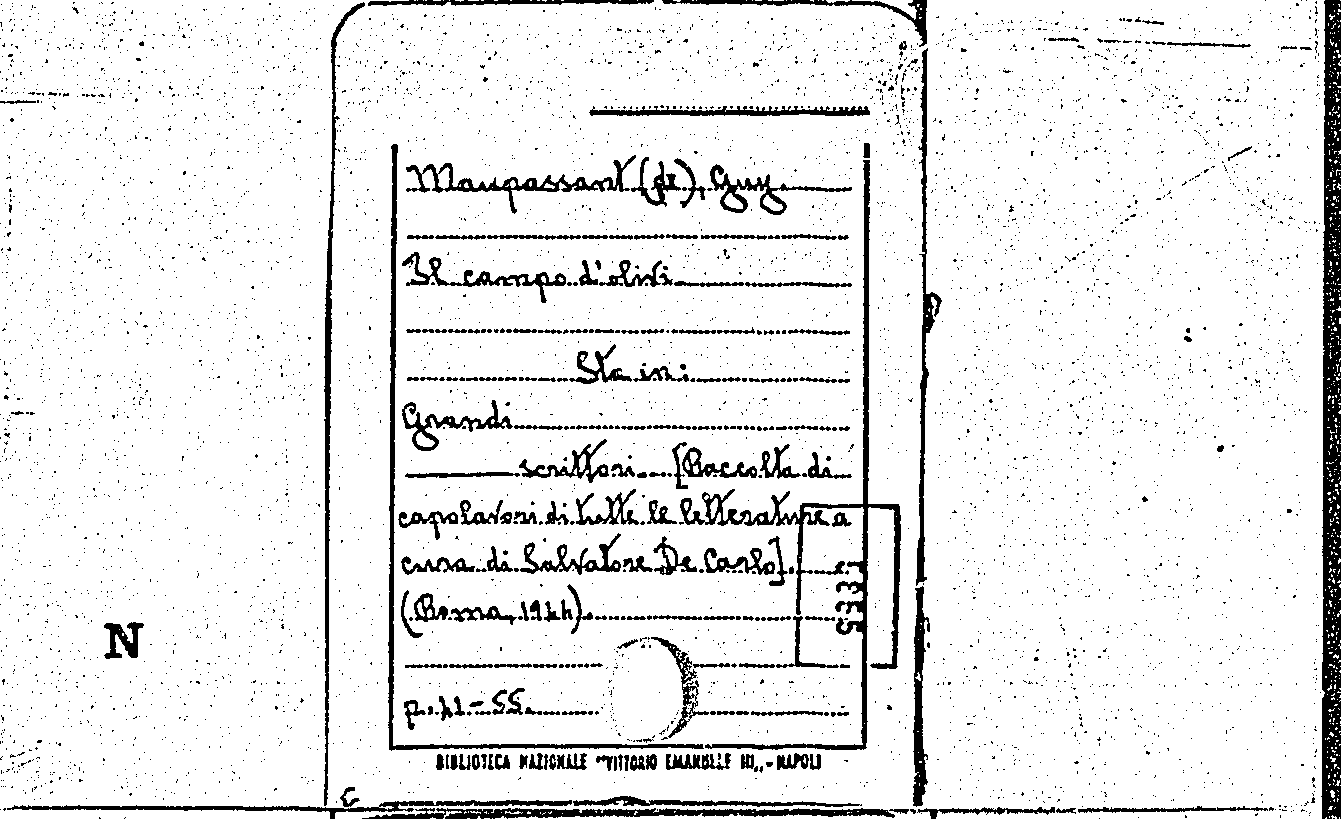 Maupassant (de), Guy.
Il campo d'olivi.
Sta in:
Grandi
scrittori. [Raccolta di
capolavori di tutte le letterature a
cura di Salvatore De Carlo].
(Roma, 1944).
p. 41-55.
BIBLIOTECA NAZIONALE "VITTORIO EMANUELE III„ - NAPOLI
N